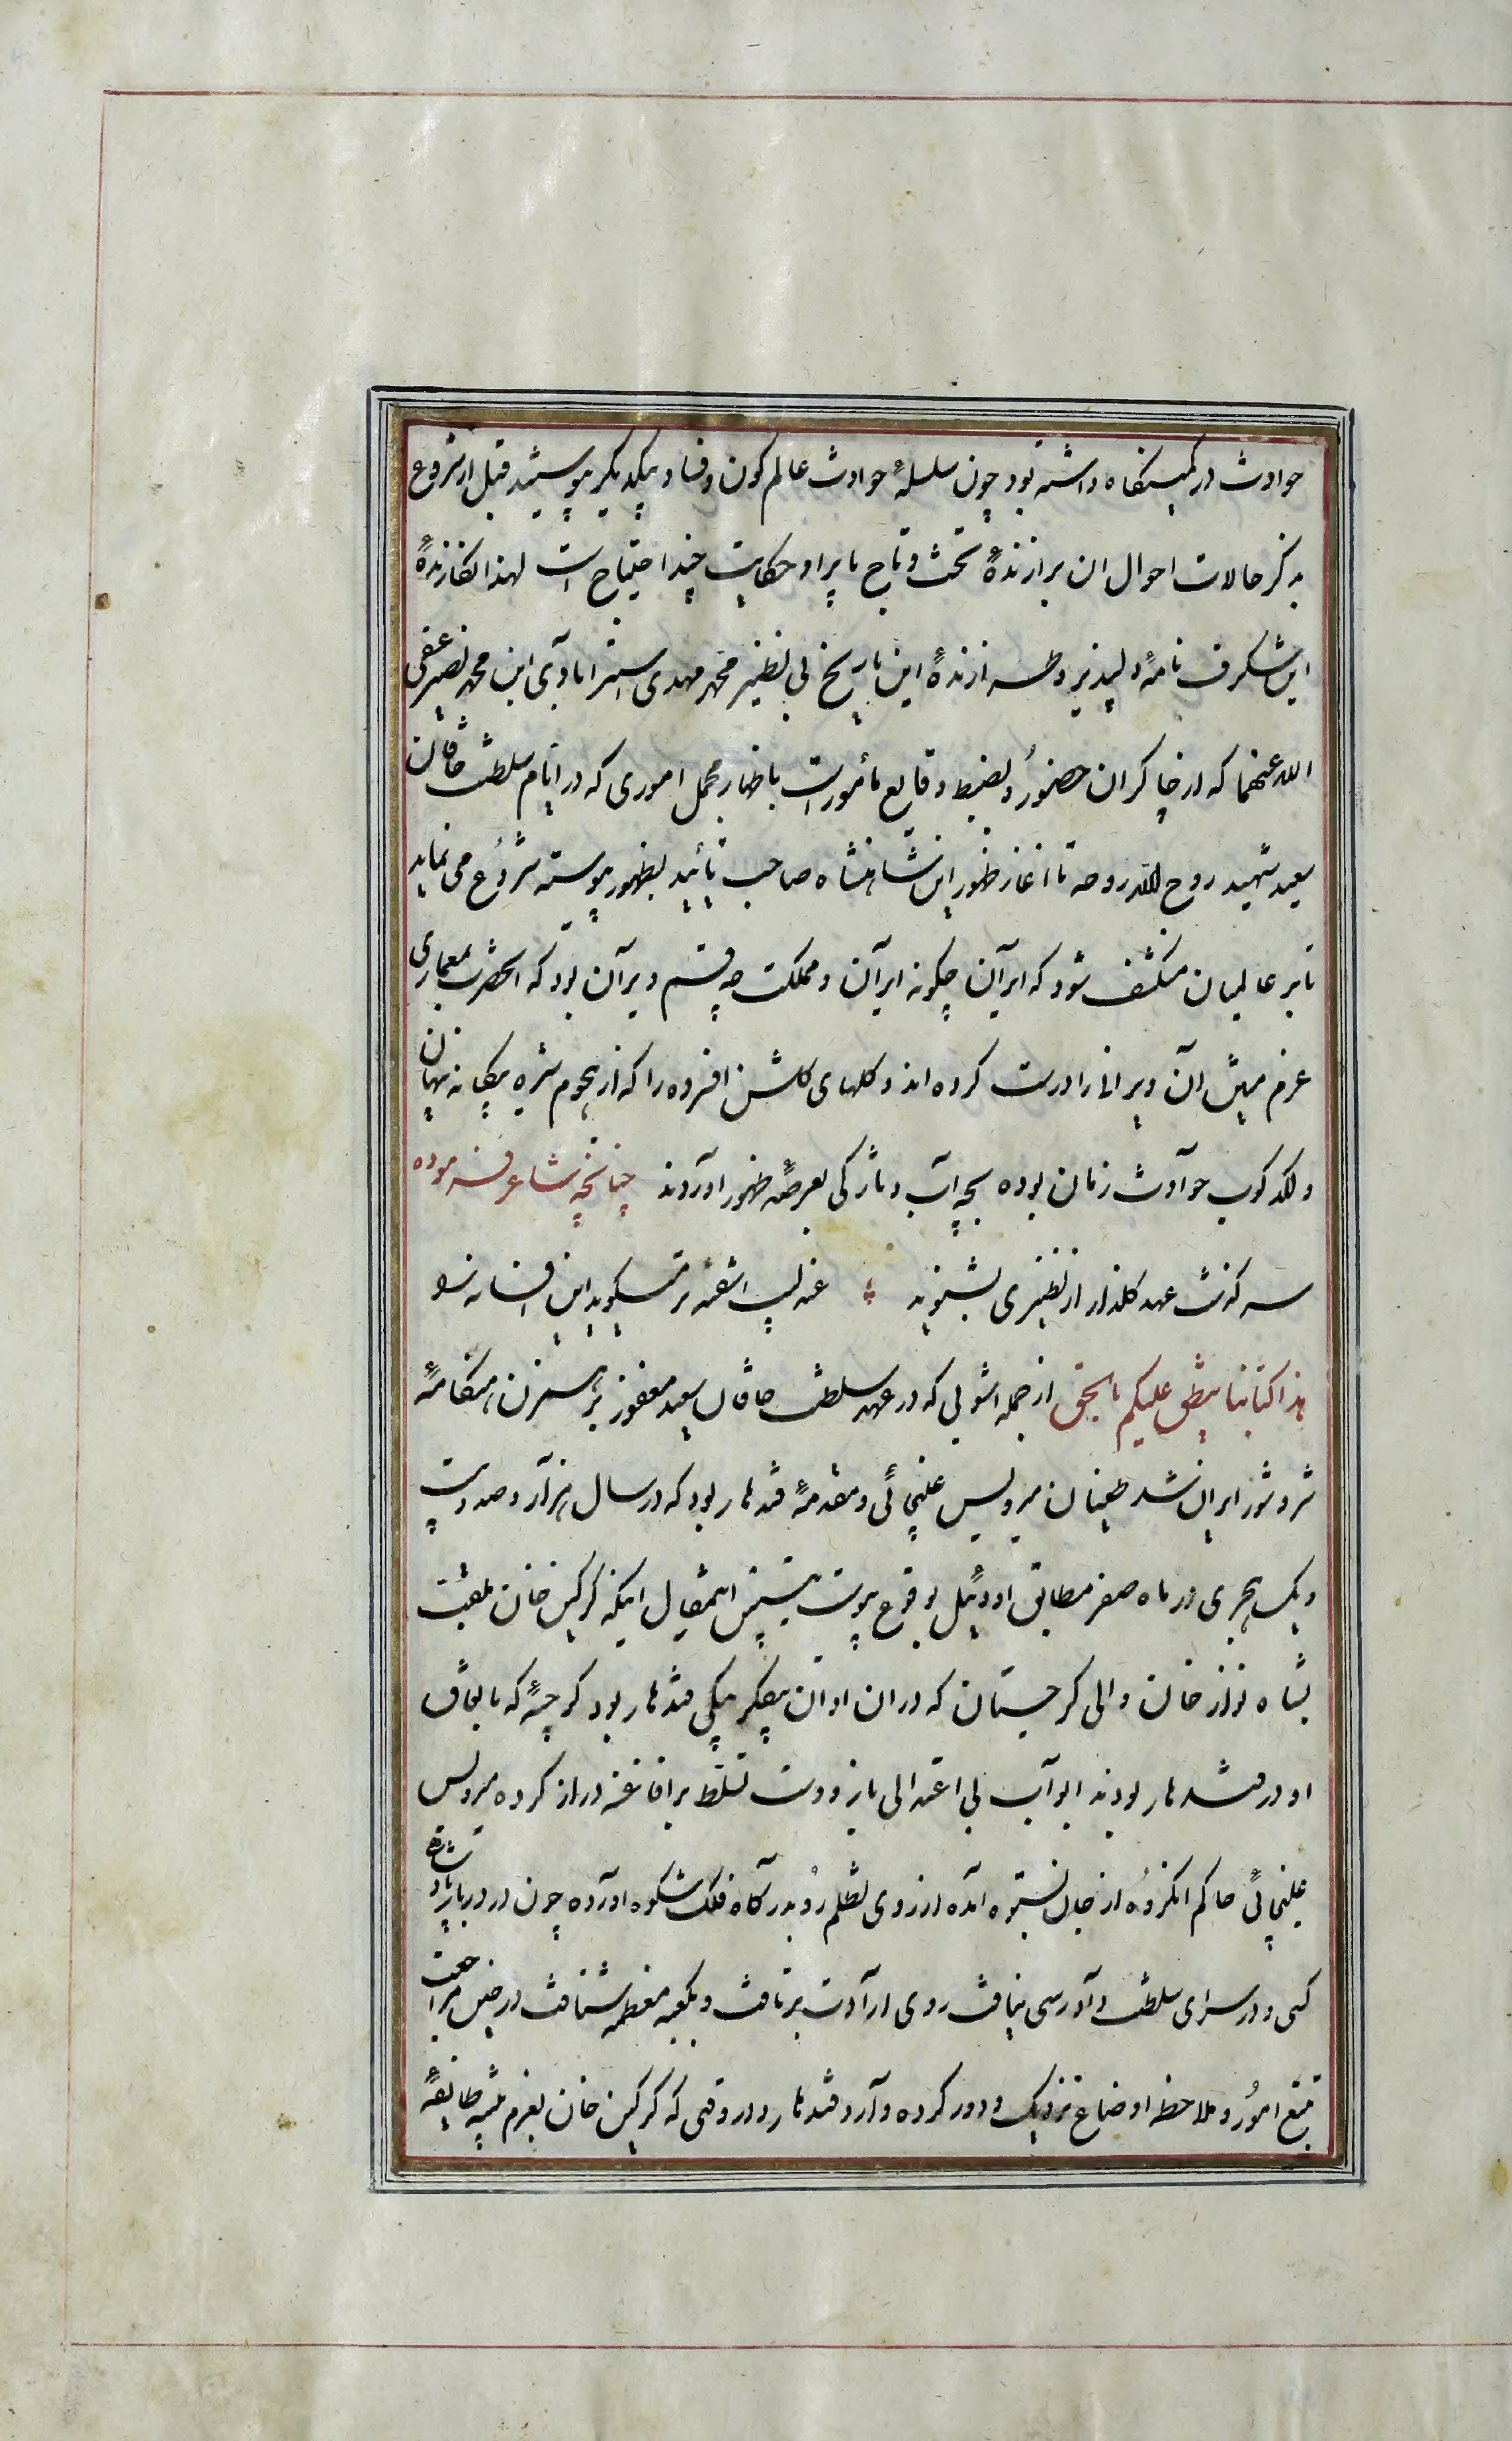 حوادث در کمینگاه داشته بود چون سلسلهٔ حوادث عالم کون و فساد بیکدیگر پیوسته قبل از شروع
بذکر حالات احوال ان برازندهٔ تخت و تاج بایراد حکایت چند احتیاج است لهذا نگارندهٔ
این شگرف نامهٔ دلپذیر و طرازندهٔ این تاریخ بی نظیر محمد مهدی استرابادی ابن محمد نصیر عفی
الله عنهما که از چاکران حضور و بضبط وقایع مأمور است باظهار مجمل اموری که در ایام سلطنت خاقان
سعید شهید روح الله روحه تا اغاز ظهور این شاهنشاه صاحب تائید بظهور پیوسته شروع می نماید
تا بر عالمیان منکشف شود که ایران چگونه ایران و مملکت چه قسم ویران بود که انحضرت بمعماری
عزم متین آن ویرانی را درست کرده اند و کلهای کلشن افسرده را که از هجوم سبزه بیکانه پنهان
و لکد کوب حوادث زمان بوده بچه آب و تازکی بعرصهٔ ظهور اوردند چنانچه شاعر فرموده
سرکذشت عهد کل را از نظیری بشنوید عندلیب اشفته تر میکوید این افسانه را
هذا کتابنا ینطق علیکم بالحق از جمله اشوبی که در عهد سلطنت خاقان سعید مغفور برهمزن هنکامهٔ
شر و شور ایران شد طغیان میرویس غلیجائی و مقدمهٔ قندهار بود که در سال هزار و صد و بیست
و یک هجری در ماه صفر مطابق اودئیل بوقوع پیوست تبیین اینمقال اینکه کرکین خان ملقب
بشاه نواز خان والی کرجستان که در ان اوان بیکلربیکی قندهار بود کرجیهٔ که باتفاق
او در قندهار بودند ابواب بی اعتدالی باز و دست تسلط بر افاغنه دراز کرده میرویس
غلیجائی حاکم انکروه از جان بستوه آمده از روی تظلم رو بدرکاه فلک شکوه اورده چون در دربار پادشاهی
کسی و در سرای سلطنت دادرسی نیافت روی ارادت برتافت و بکعبه معظمه شتافت در حین مراجعت
تتبع امور و ملاحظه اوضاع نزدیک و دور کرده وارد قندهار و در وقتی که کرکین خان بعزم تنبیه طایفهٔ